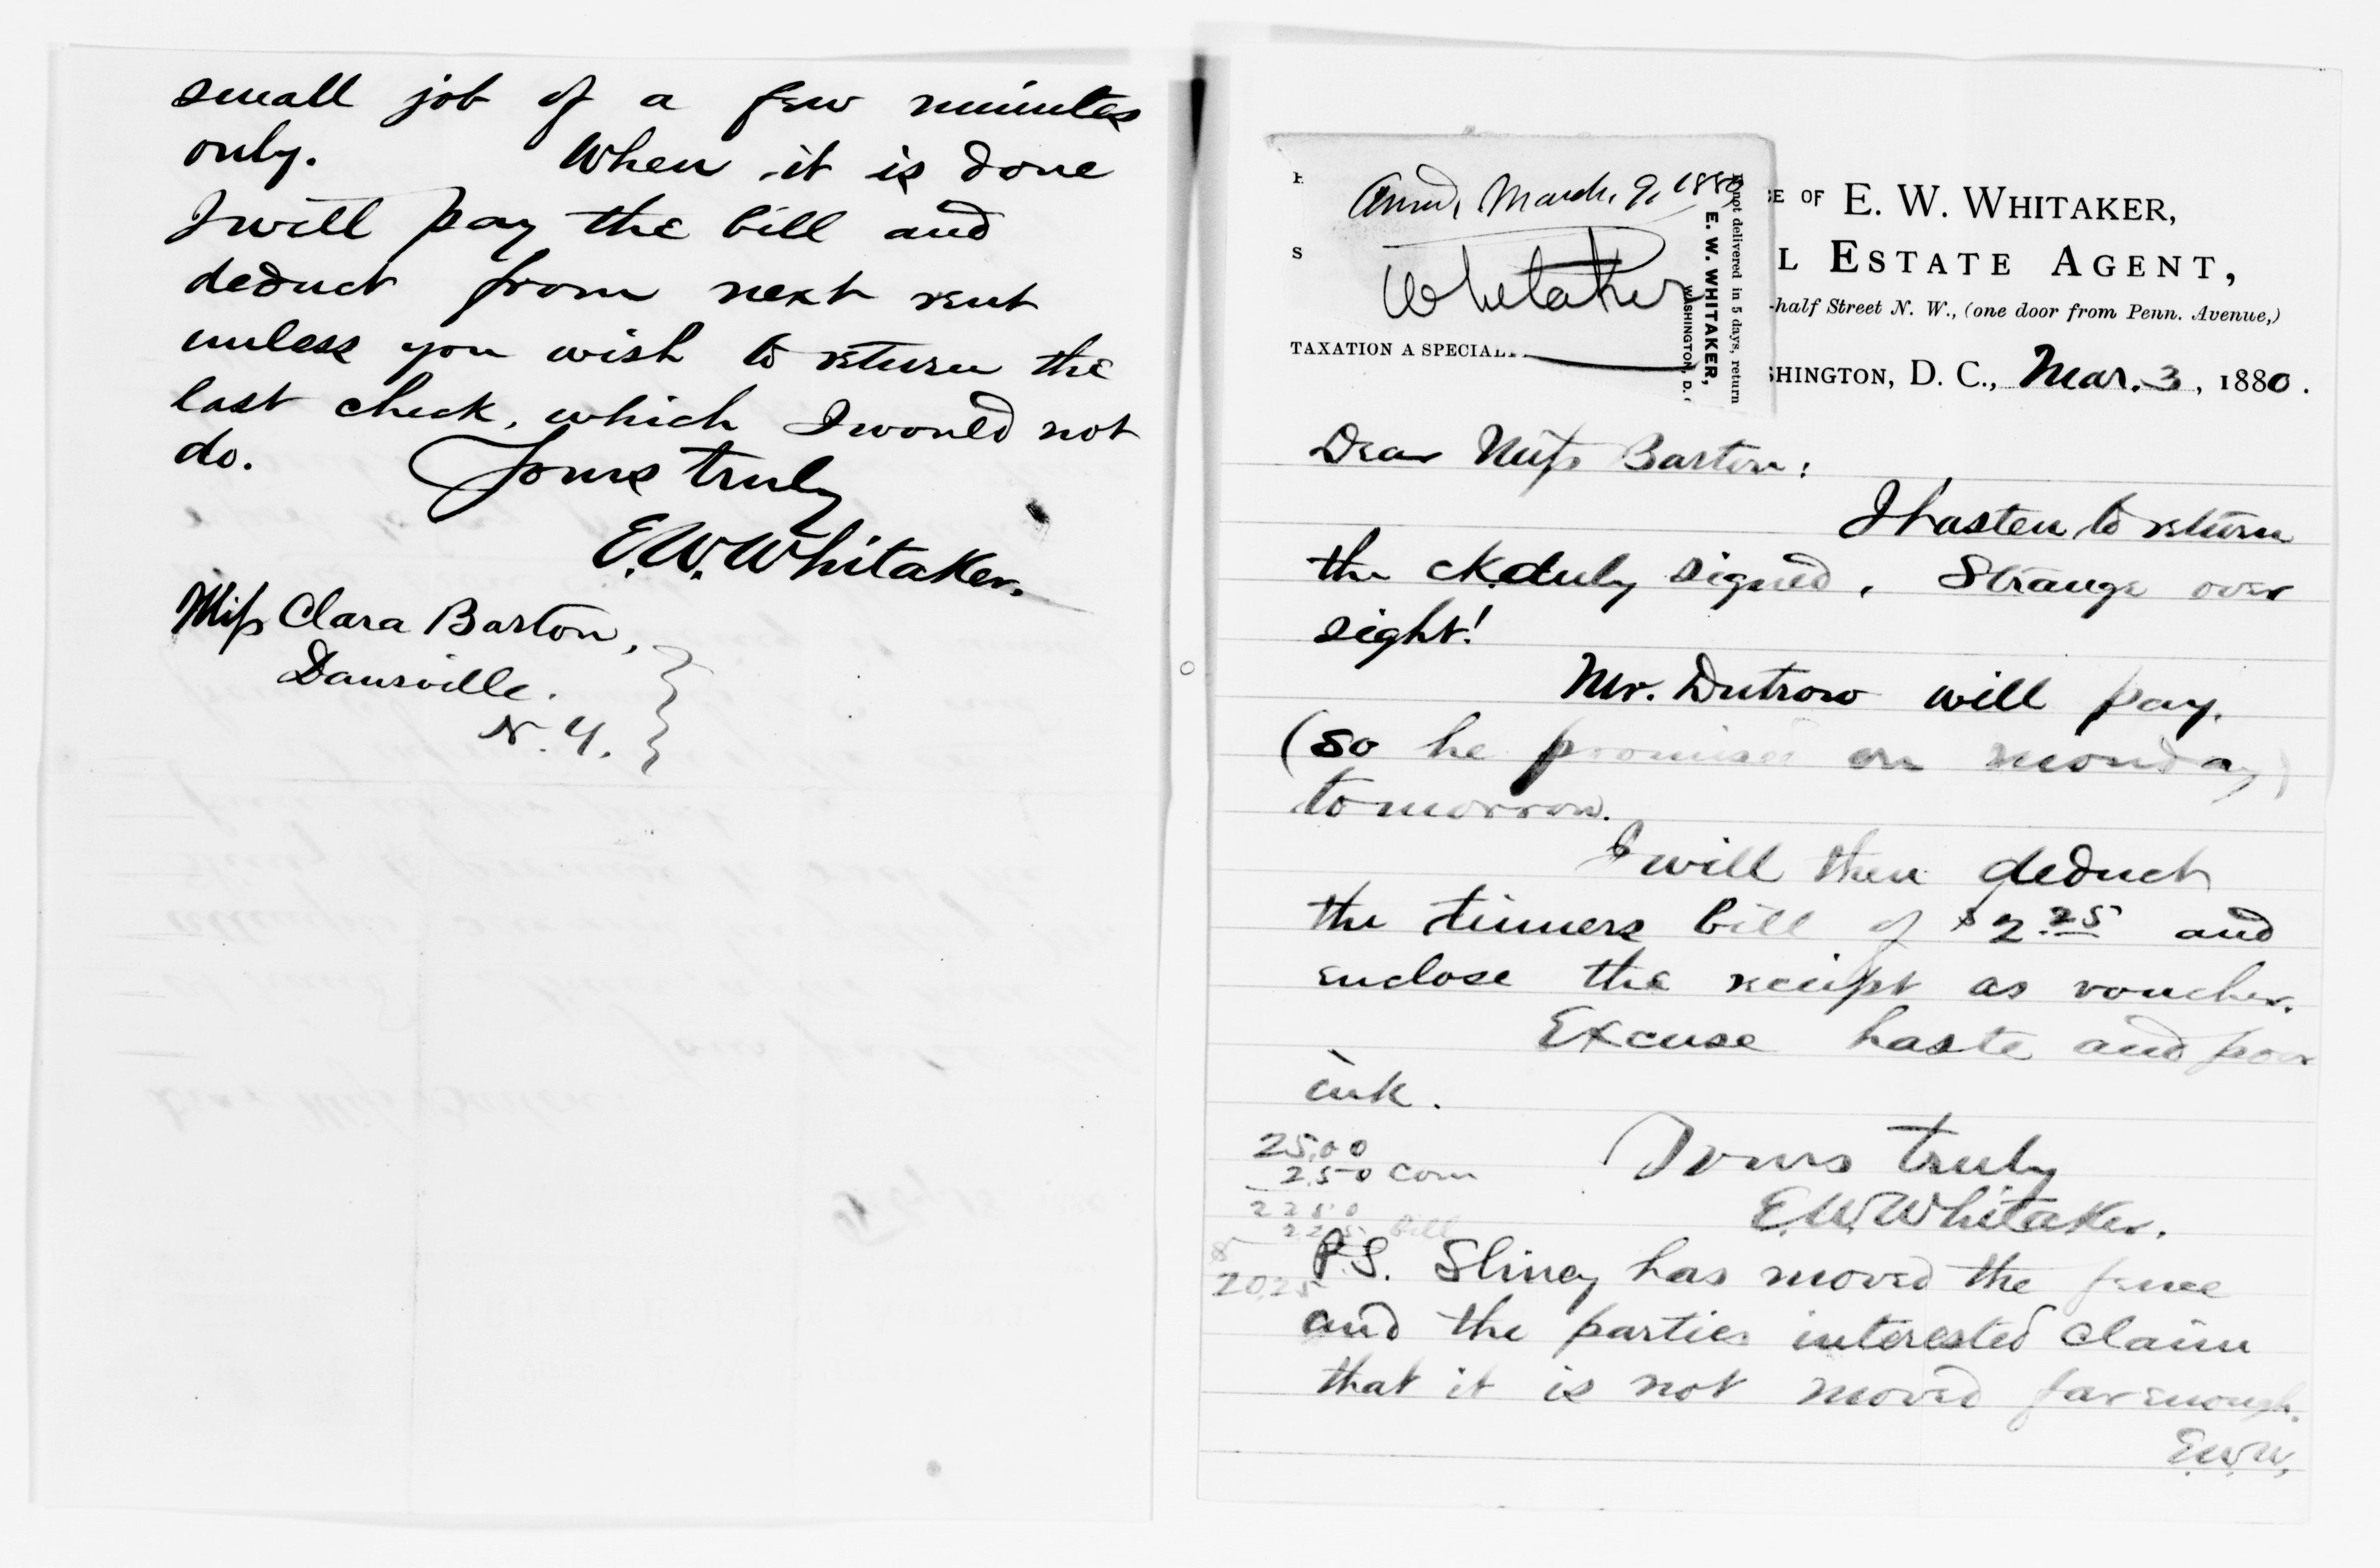 small job of a few minutes
only. When it is done
I will pay the bill and
deduct from next rent
unless you wish to return the
last check, which I would not
do. Yours truly
E. W. Whitaker.
Miss Clara Barton,
Dansville.
N. Y.
E. W. WHITAKER,
L ESTATE AGENT,
-half Street N. W., (one door from Penn. Avenue,)
TAXATION A SPECIAL
SHINGTON, D. C., Mar. 3, 1880.
Ansd, March, 9, 1880
Whitaker
not delivered in 5 days, return
E. W. WHITAKER,
WASHINGTON, D.
Dear Miss Barton:
I hasten to return
the ck. duly signed. Strange over
sight!
Mr. Dutrow will pay,
(so he promised on Monday)
tomorrow.
I will then deduct
the tinners bill of $2.25 and
enclose the receipt as voucher.
Excuse haste and poor
ink.
Yours truly
E. W. Whitaker.
25,00
2.50 Com
22 50
2 25 bill
$
20,25
P.S. Sliney has moved the fence
and the parties interested claim
that it is not moved far enough.
E.W.W.